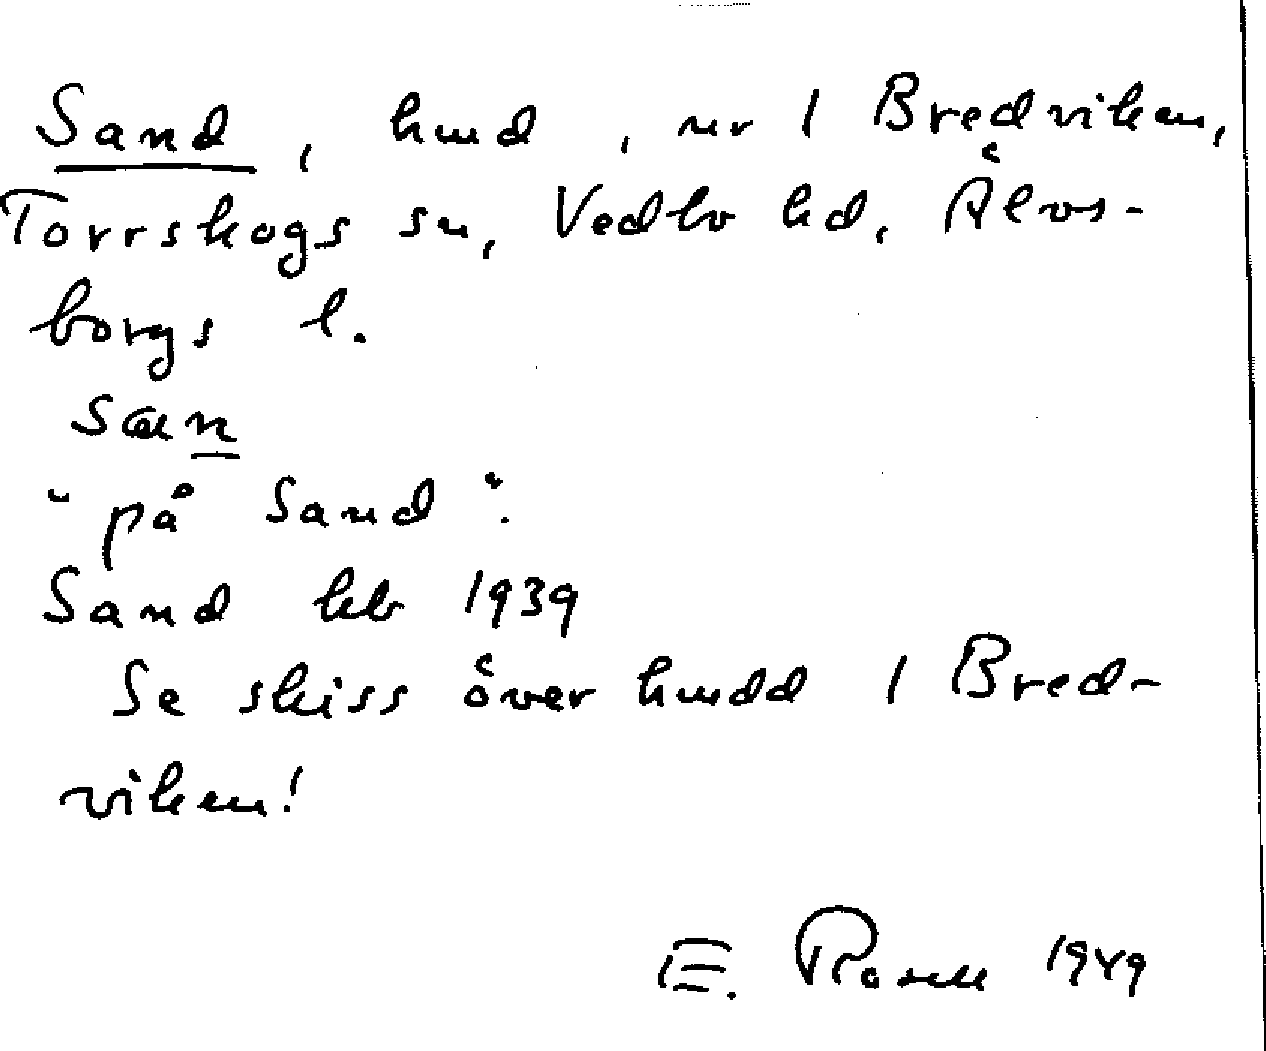 Sand, hmd, nr 1 Bredviken,
Torrskogs sn, Vedbo hd, Älvs-
borgs l.
san
"på Sand".
Sand kb 1939
Se skiss över hmdd 1 Bred-
viken!
E. Rosell 1949